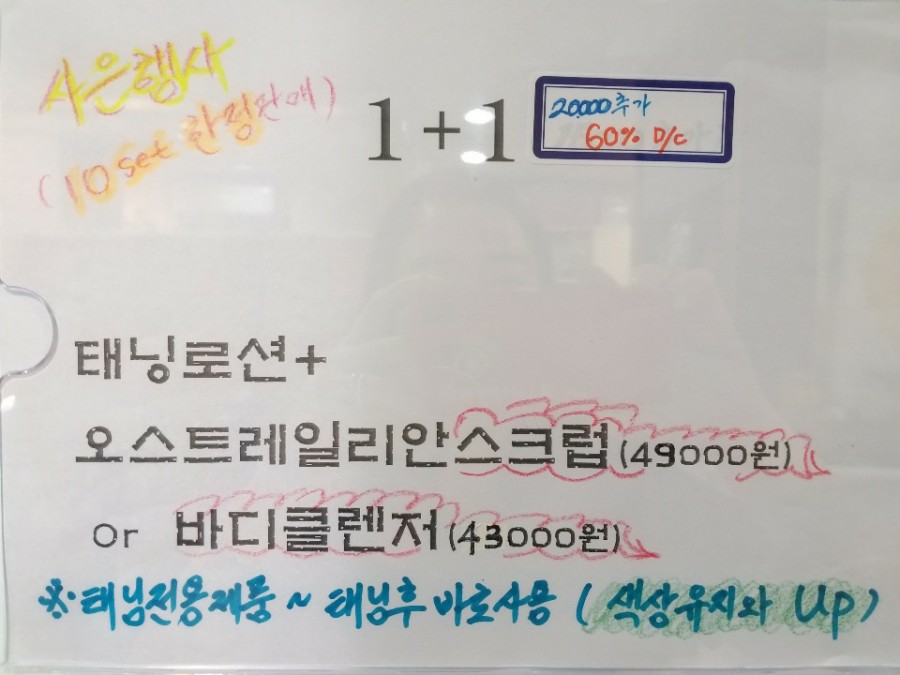 사은행사
(10set 한정판매)
1+1
20,000추가
60% D/C
태닝로션+
오스트레일리안스크럽(49000원)
Or 바디클렌저(43000원)
※태닝전용제품~태닝후 바로사용 (색상유지와 Up)